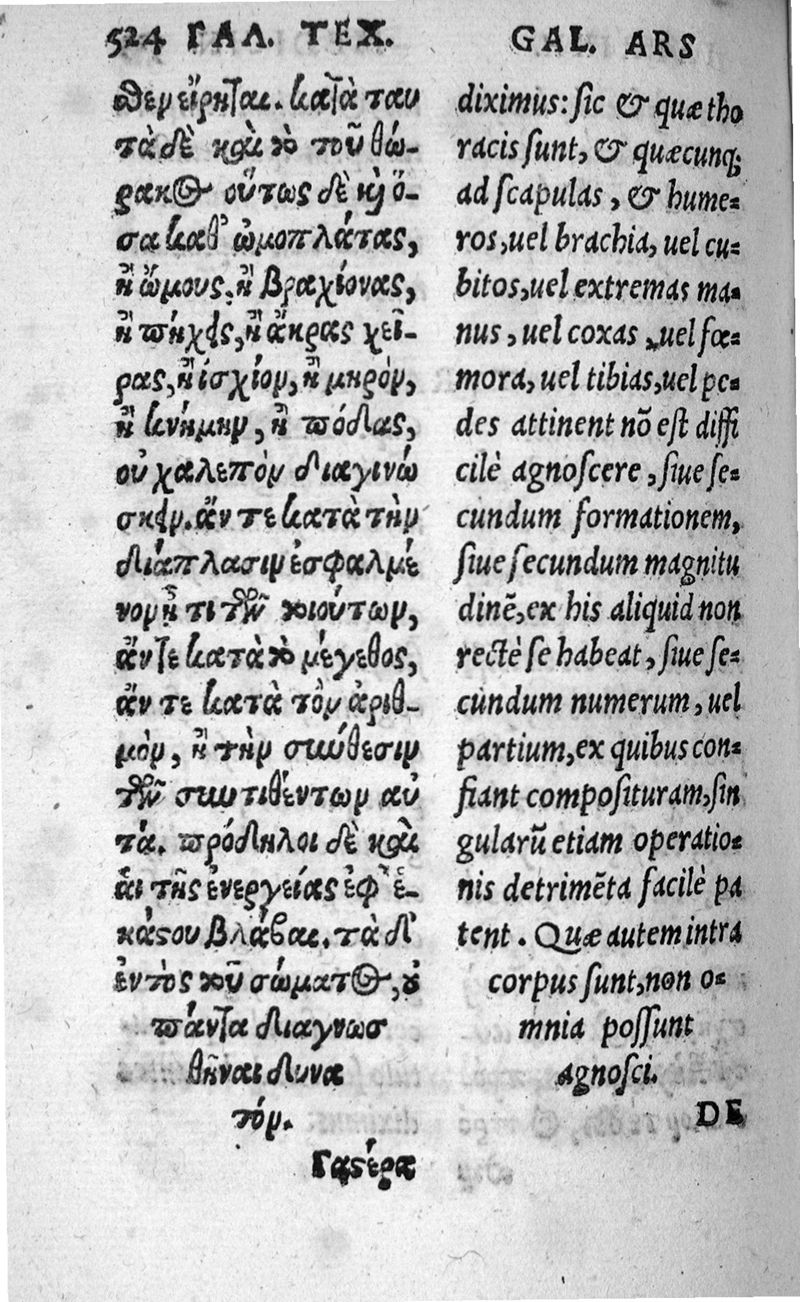 524 ΓΑΛ. ΤΕΧ.
θεν εἴρηται. κατὰ ταυ
τὰ δὲ καὶ τὸ τοῦ θώ-
ρακος οὕτως δὲ κỳ ὅ-
σα καθ' ὠμοπλάτας,
ἢ ὤμους, ἢ βραχίονας,
ἢ πήχεις, ἢ ἄκρας χεῖ-
ρας, ἢ ἰσχίον, ἢ μηρὸν,
ἢ κνήμην, ἢ πόδας,
οὐ χαλεπὸν διαγινώ
σκειν. ἄν τε κατὰ τὴν
διάπλασιν ἐσφαλμέ
νον ᾖ τι τῶν τοιούτων,
ἄν τε κατὰ τὸ μέγεθος,
ἄν τε κατὰ τὸν ἀριθ-
μὸν, ἢ τὴν σύνθεσιν
τῶν συντιθέντων αὐ
τά. πρόδηλοι δὲ καὶ
αἱ τῆς ἐνεργείας ἐφ' ἑ-
κάστου βλάβαι. τὰ δ'
ἐντὸς τοῦ σώματος, οὐ
πάντα διαγνωσ
θῆναι δυνα
τόν.
Γαστέρα
GAL. ARS
diximus: sic & quæ tho
racis sunt, & quæcunq;
ad scapulas, & hume-
ros, uel brachia, uel cu-
bitos, uel extremas ma-
nus, uel coxas, uel fœ-
mora, uel tibias, uel pe-
des attinent nõ est diffi
cilè agnoscere, siue se-
cundum formationem,
siue secundum magnitu
dinẽ, ex his aliquid non
rectè se habeat, siue se-
cundum numerum, uel
partium, ex quibus con-
fiant composituram, sin
gularũ etiam operatio-
nis detrimẽta facilè pa
tent. Quæ autem intra
corpus sunt, non o-
mnia possunt
agnosci.
DE